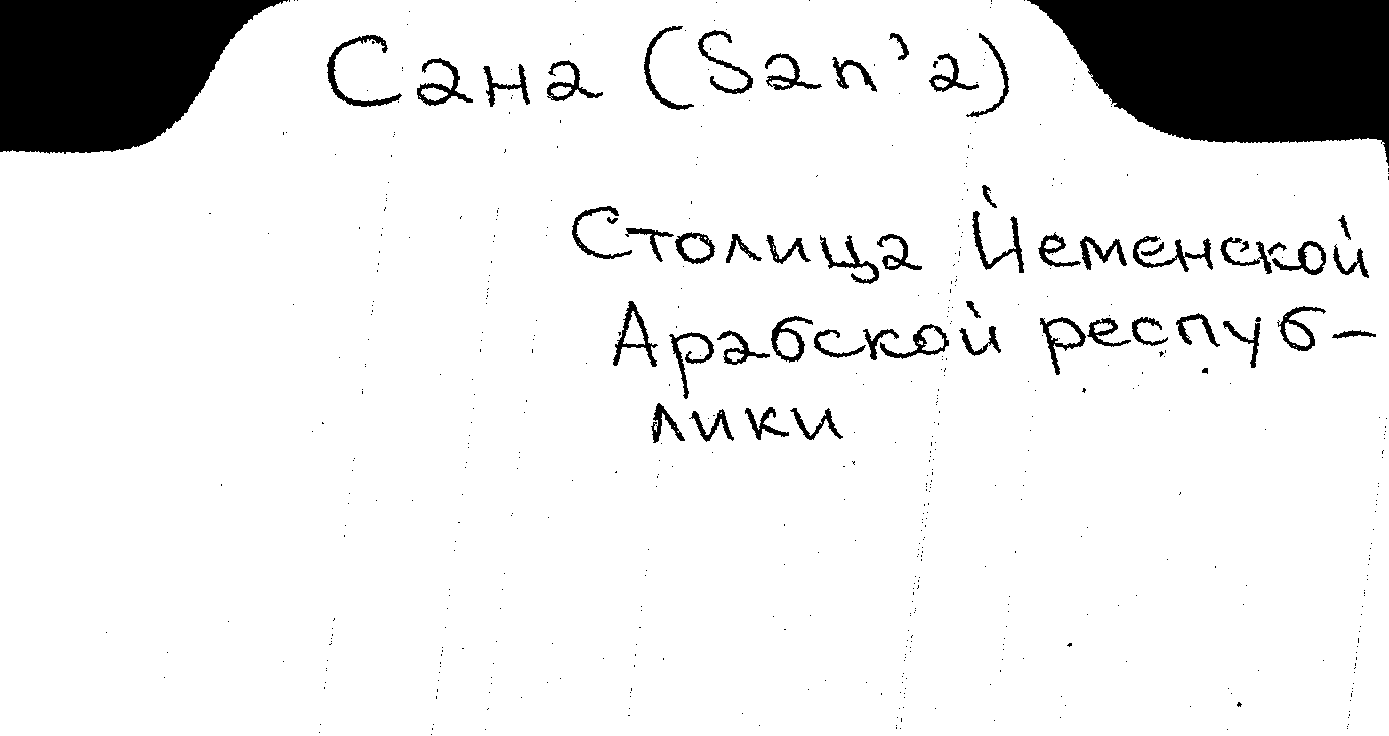 Сана (San'a)
Столица Йеменской
Арабской респуб-
лики